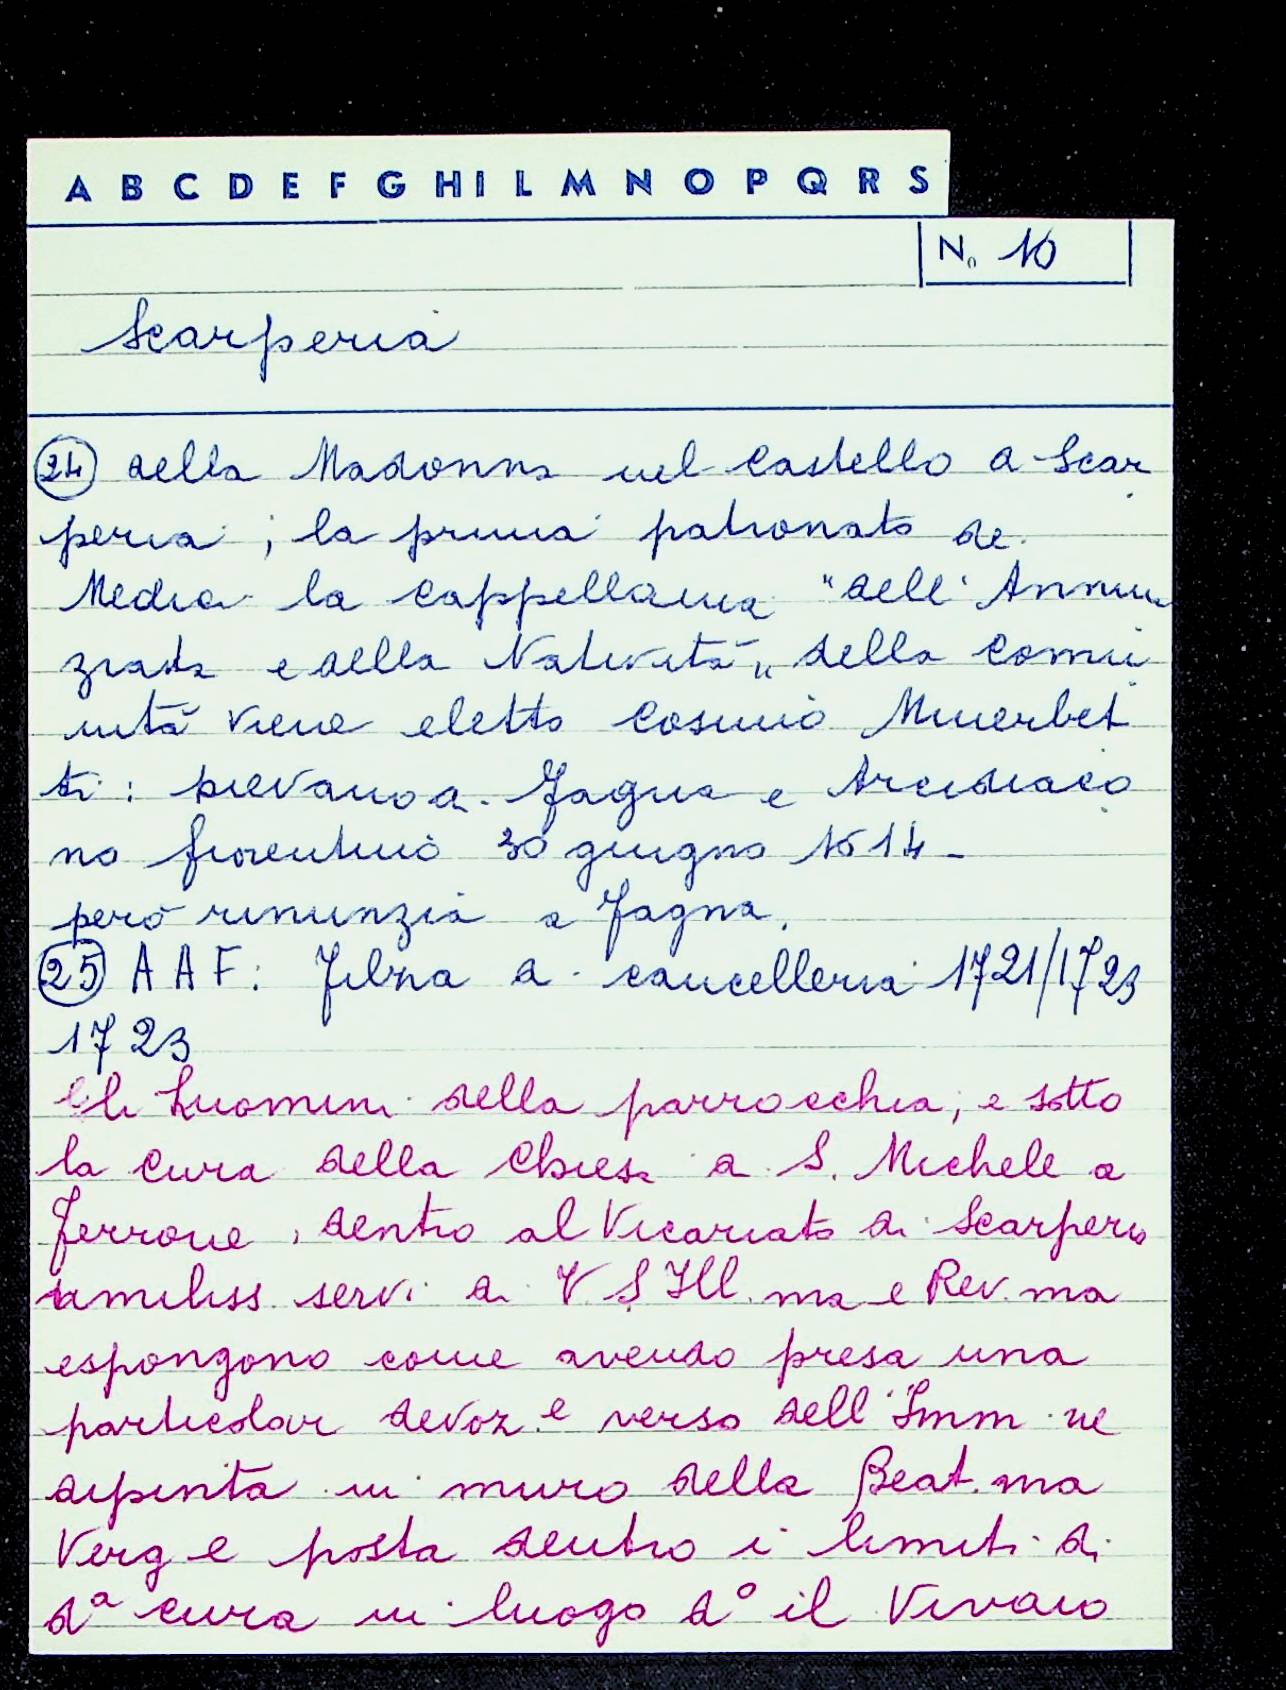 A B C D E F G H I L M N O P Q R S
N. 10
Scarperia
24 della Madonna nel Castello di Scar
peria ; la prima patronato de
Medici la cappellania "dell'Annun
ziata e della Natività„ della Comu
nità viene eletto Cosimo Minerbet
ti : pievano a Fagna e Arcidiaco
no fiorentino 30 giugno 1614 -
però rinunzia a Fagna.
25 A A F : Filza di cancelleria 1721/1723
1723
Gli huomini della parrocchia, e sotto
la Cura della Chiesa di S. Michele a
Ferrone, dentro al Vicariato di Scarperia
umiliss servi di V S Ill.ma e Rev.ma
espongono come avendo presa una
particolar devoz.e verso dell'Imm.ne
dipinta in muro della Beat.ma
Verg e posta dentro i limiti di
dª cura in luogo dº il Vivaio